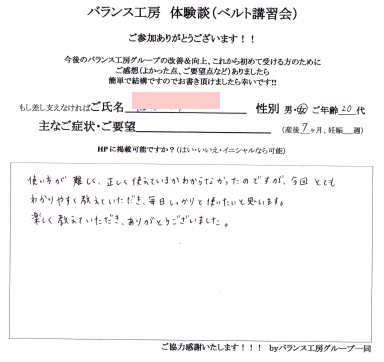 バランス工房 体験談(ベルト講習会)
ご参加ありがとうございます!!
今後のバランス工房グループの改善&向上、これから初めて受ける方のために
ご感想(よかった点、ご要望点など)ありましたら
簡単で結構ですのでお書き頂けましたら幸いです!!
もし差し支えなければご氏名 性別 男・女 ご年齢 20 代
主なご症状・ご要望 (産後 7 ヶ月、妊娠 週)
HPに掲載可能ですか?(はい・いいえ・イニシャルなら可能)
使い方が難しく、正しく使えているかわからなかったのですが、今回とても
わかりやすく教えていただき、毎日しっかりと使いたいと思います。
楽しく教えていただき、ありがとうございました。
ご協力感謝いたします!!! byバランス工房グループ一同